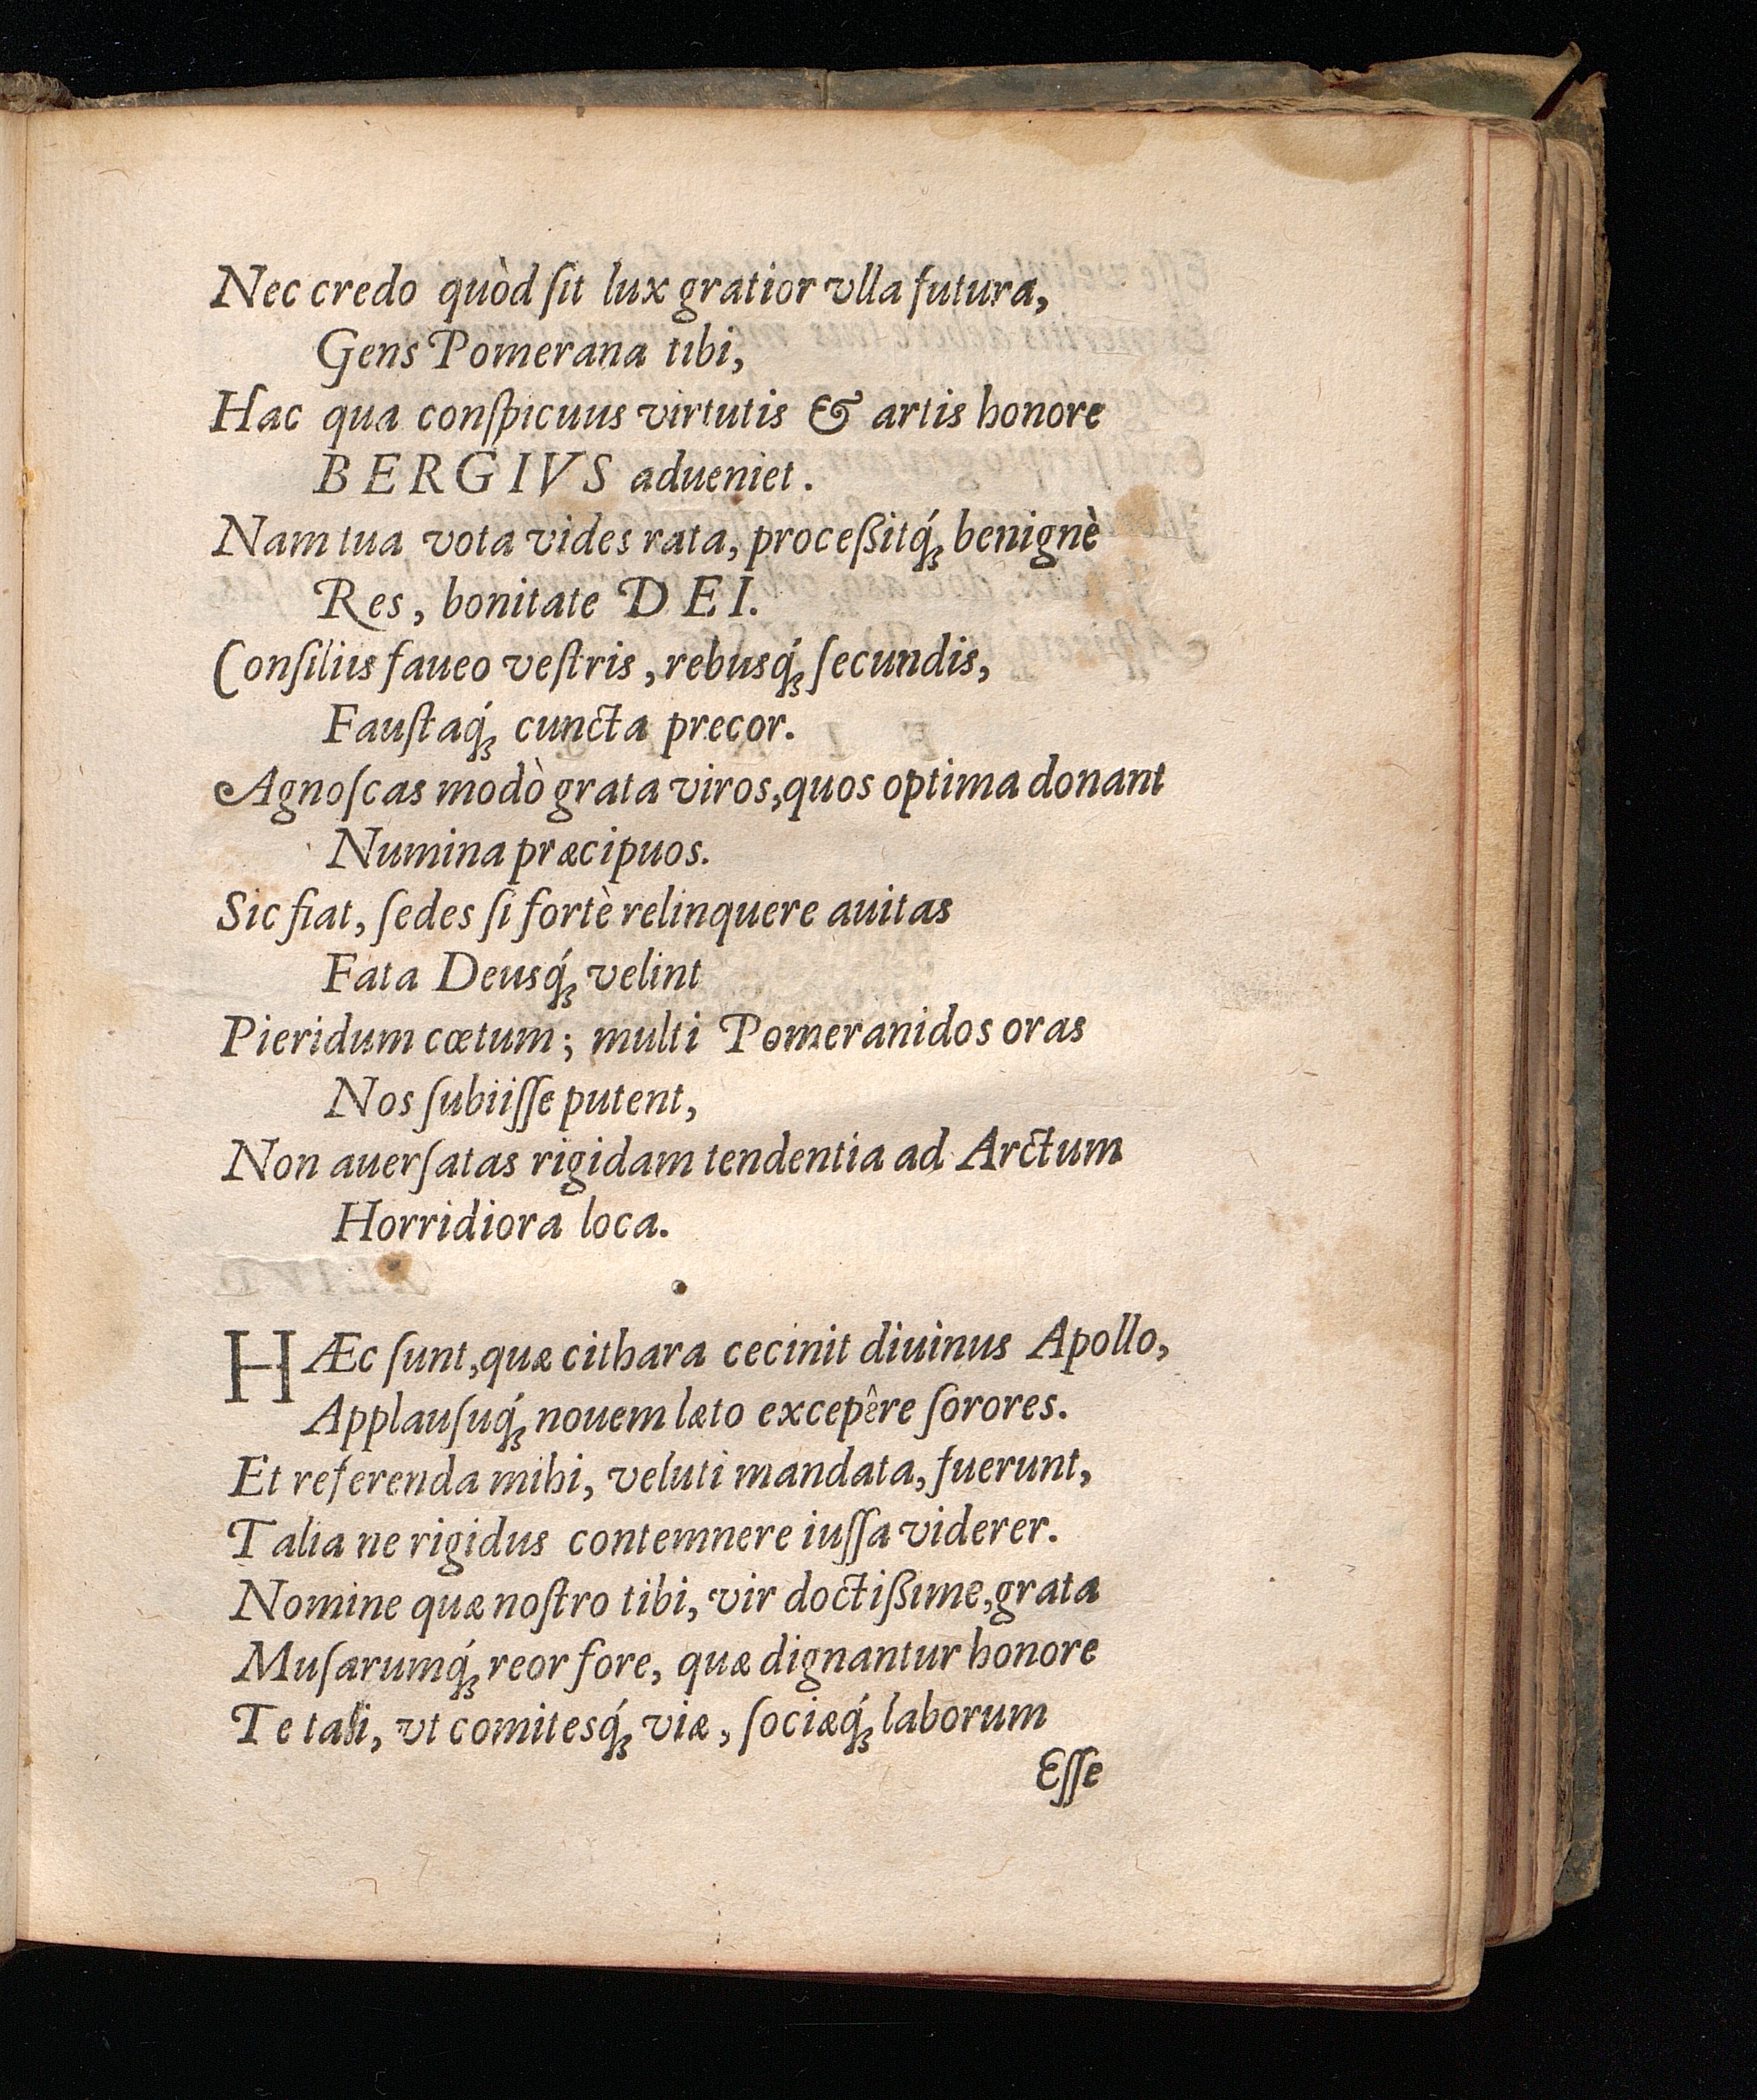 Nec credo quòd ſit lux gratior vlla futura,
Gens Pomerana tibi,
Hac qua conſpicuus virtutis & artis honore
BERGIVS adueniet.
Nam tua vota vides rata, proceßitq́ꝫ benignè
Res, bonitate DEI.
Conſiliis faueo veſtris, rebusq́ꝫ ſecundis,
Fauſtaq́ꝫ cuncta precor.
Agnoſcas modò grata viros, quos optima donant
Numina præcipuos.
Sic fiat, ſedes ſi fortè relinquere auitas
Fata Deusq́ꝫ velint
Pieridum cœtum; multi Pomeranidos oras
Nos ſubiiſſe putent,
Non auerſatas rigidam tendentia ad Arctum
Horridiora loca.
HÆc ſunt, quæ cithara cecinit diuinus Apollo,
Applauſuq́ꝫ nouem læto excepêre ſorores.
Et referenda mihi, veluti mandata, fuerunt,
Talia ne rigidus contemnere iuſſa viderer.
Nomine quæ noſtro tibi, vir doctißime, grata
Muſarumq́ꝫ reor fore, quæ dignantur honore
Te tali, vt comitesq́ꝫ viæ, ſociæq́ꝫ laborum
Eſſe